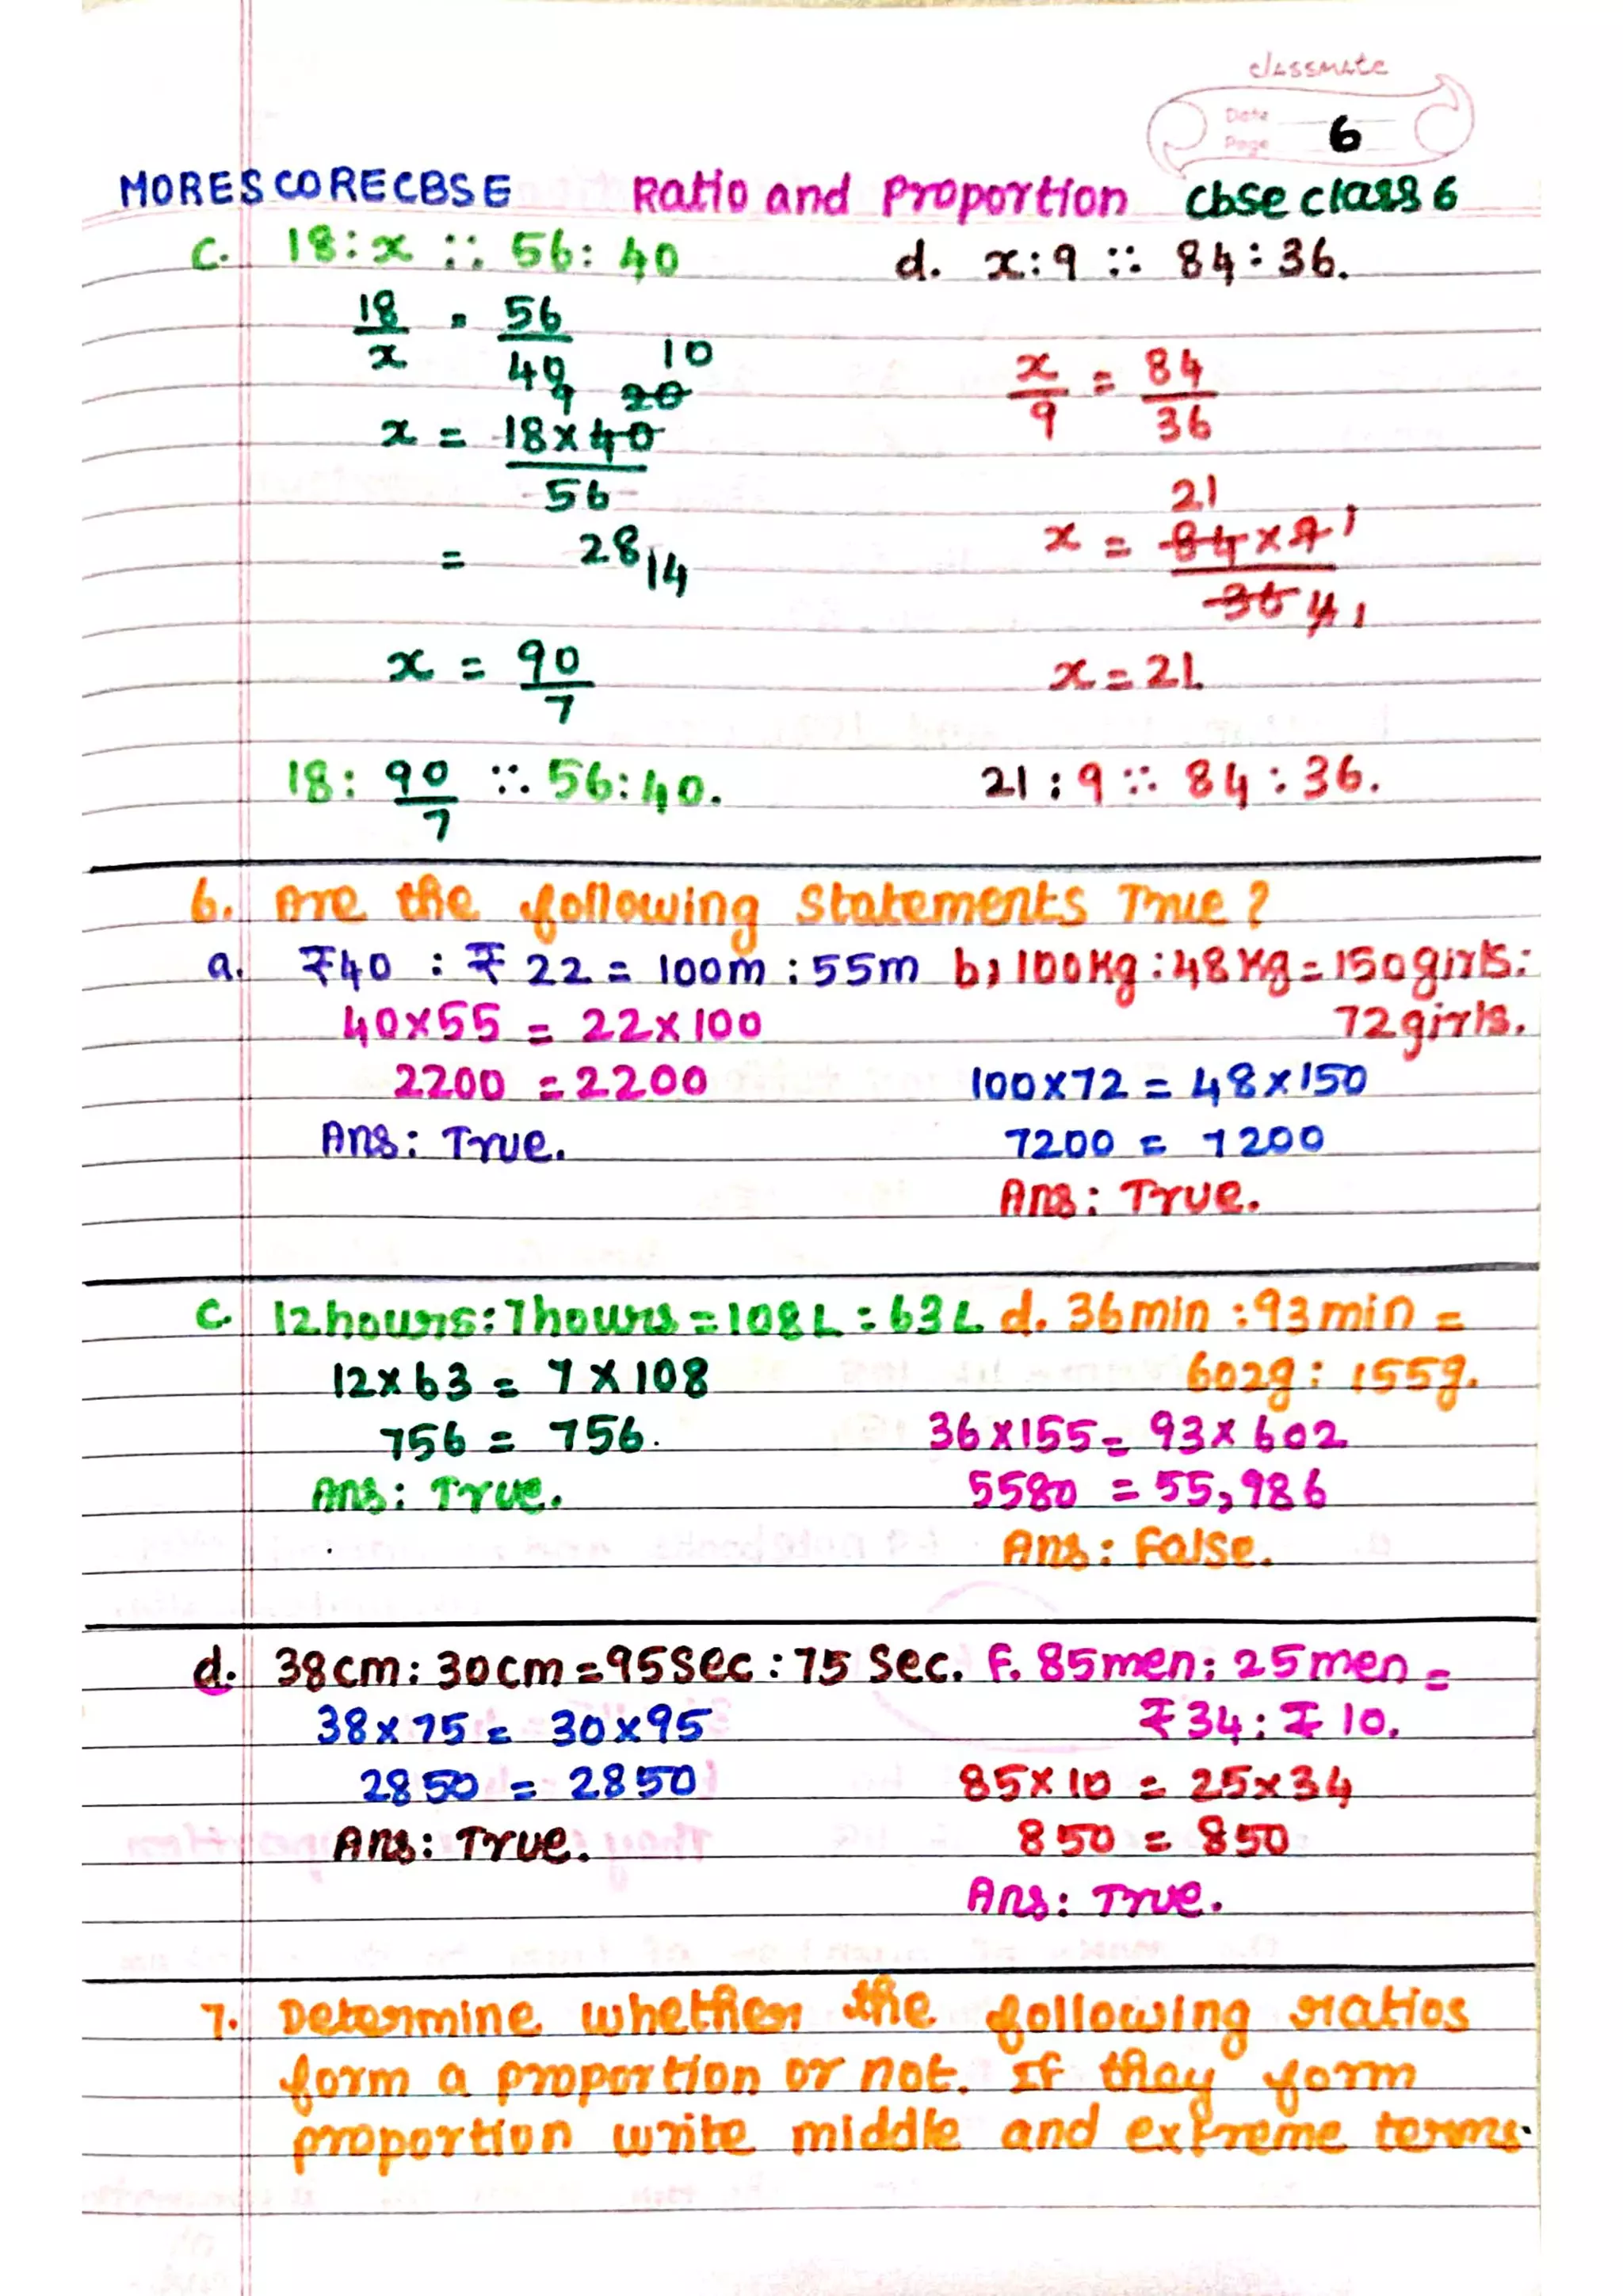 classmate
Date
Page 6
MORESCORECBSE Ratio and Proportion cbse class 6
c. 18 : x :: 56 : 40 d. x : 9 :: 84 : 36.
18/x = 56/40
x/9 = 84/36
9 20 10
x = 18 × 40 / 56
= 28 14
21
x = 84 × 9 1 / 36 4 1
x = 90/7 x = 21
18 : 90/7 :: 56 : 40. 21 : 9 :: 84 : 36.
6. Are the following statements True?
a. ₹40 : ₹ 22 = 100m : 55m b, 100Kg : 48 Kg = 150 girls :
40×55 = 22×100 72 girls.
2200 = 2200 100×72 = 48×150
Ans: True. 7200 = 7200
Ans: True.
c. 12 hours : 7 hours = 108 L : 63 L d. 36 min : 93 min =
12×63 = 7×108 602g : 155g.
756 = 756. 36×155 = 93×602
Ans: True. 5580 = 55,986
Ans: False.
d. 38cm : 30cm = 95 Sec : 75 Sec. f. 85 men : 25 men =
38×75 = 30×95 ₹34 : ₹ 10.
2850 = 2850 85×10 = 25×34
Ans: True. 850 = 850
Ans: True.
7. Determine whether the following ratios
form a proportion or not. If they form
proportion write middle and extreme terms.